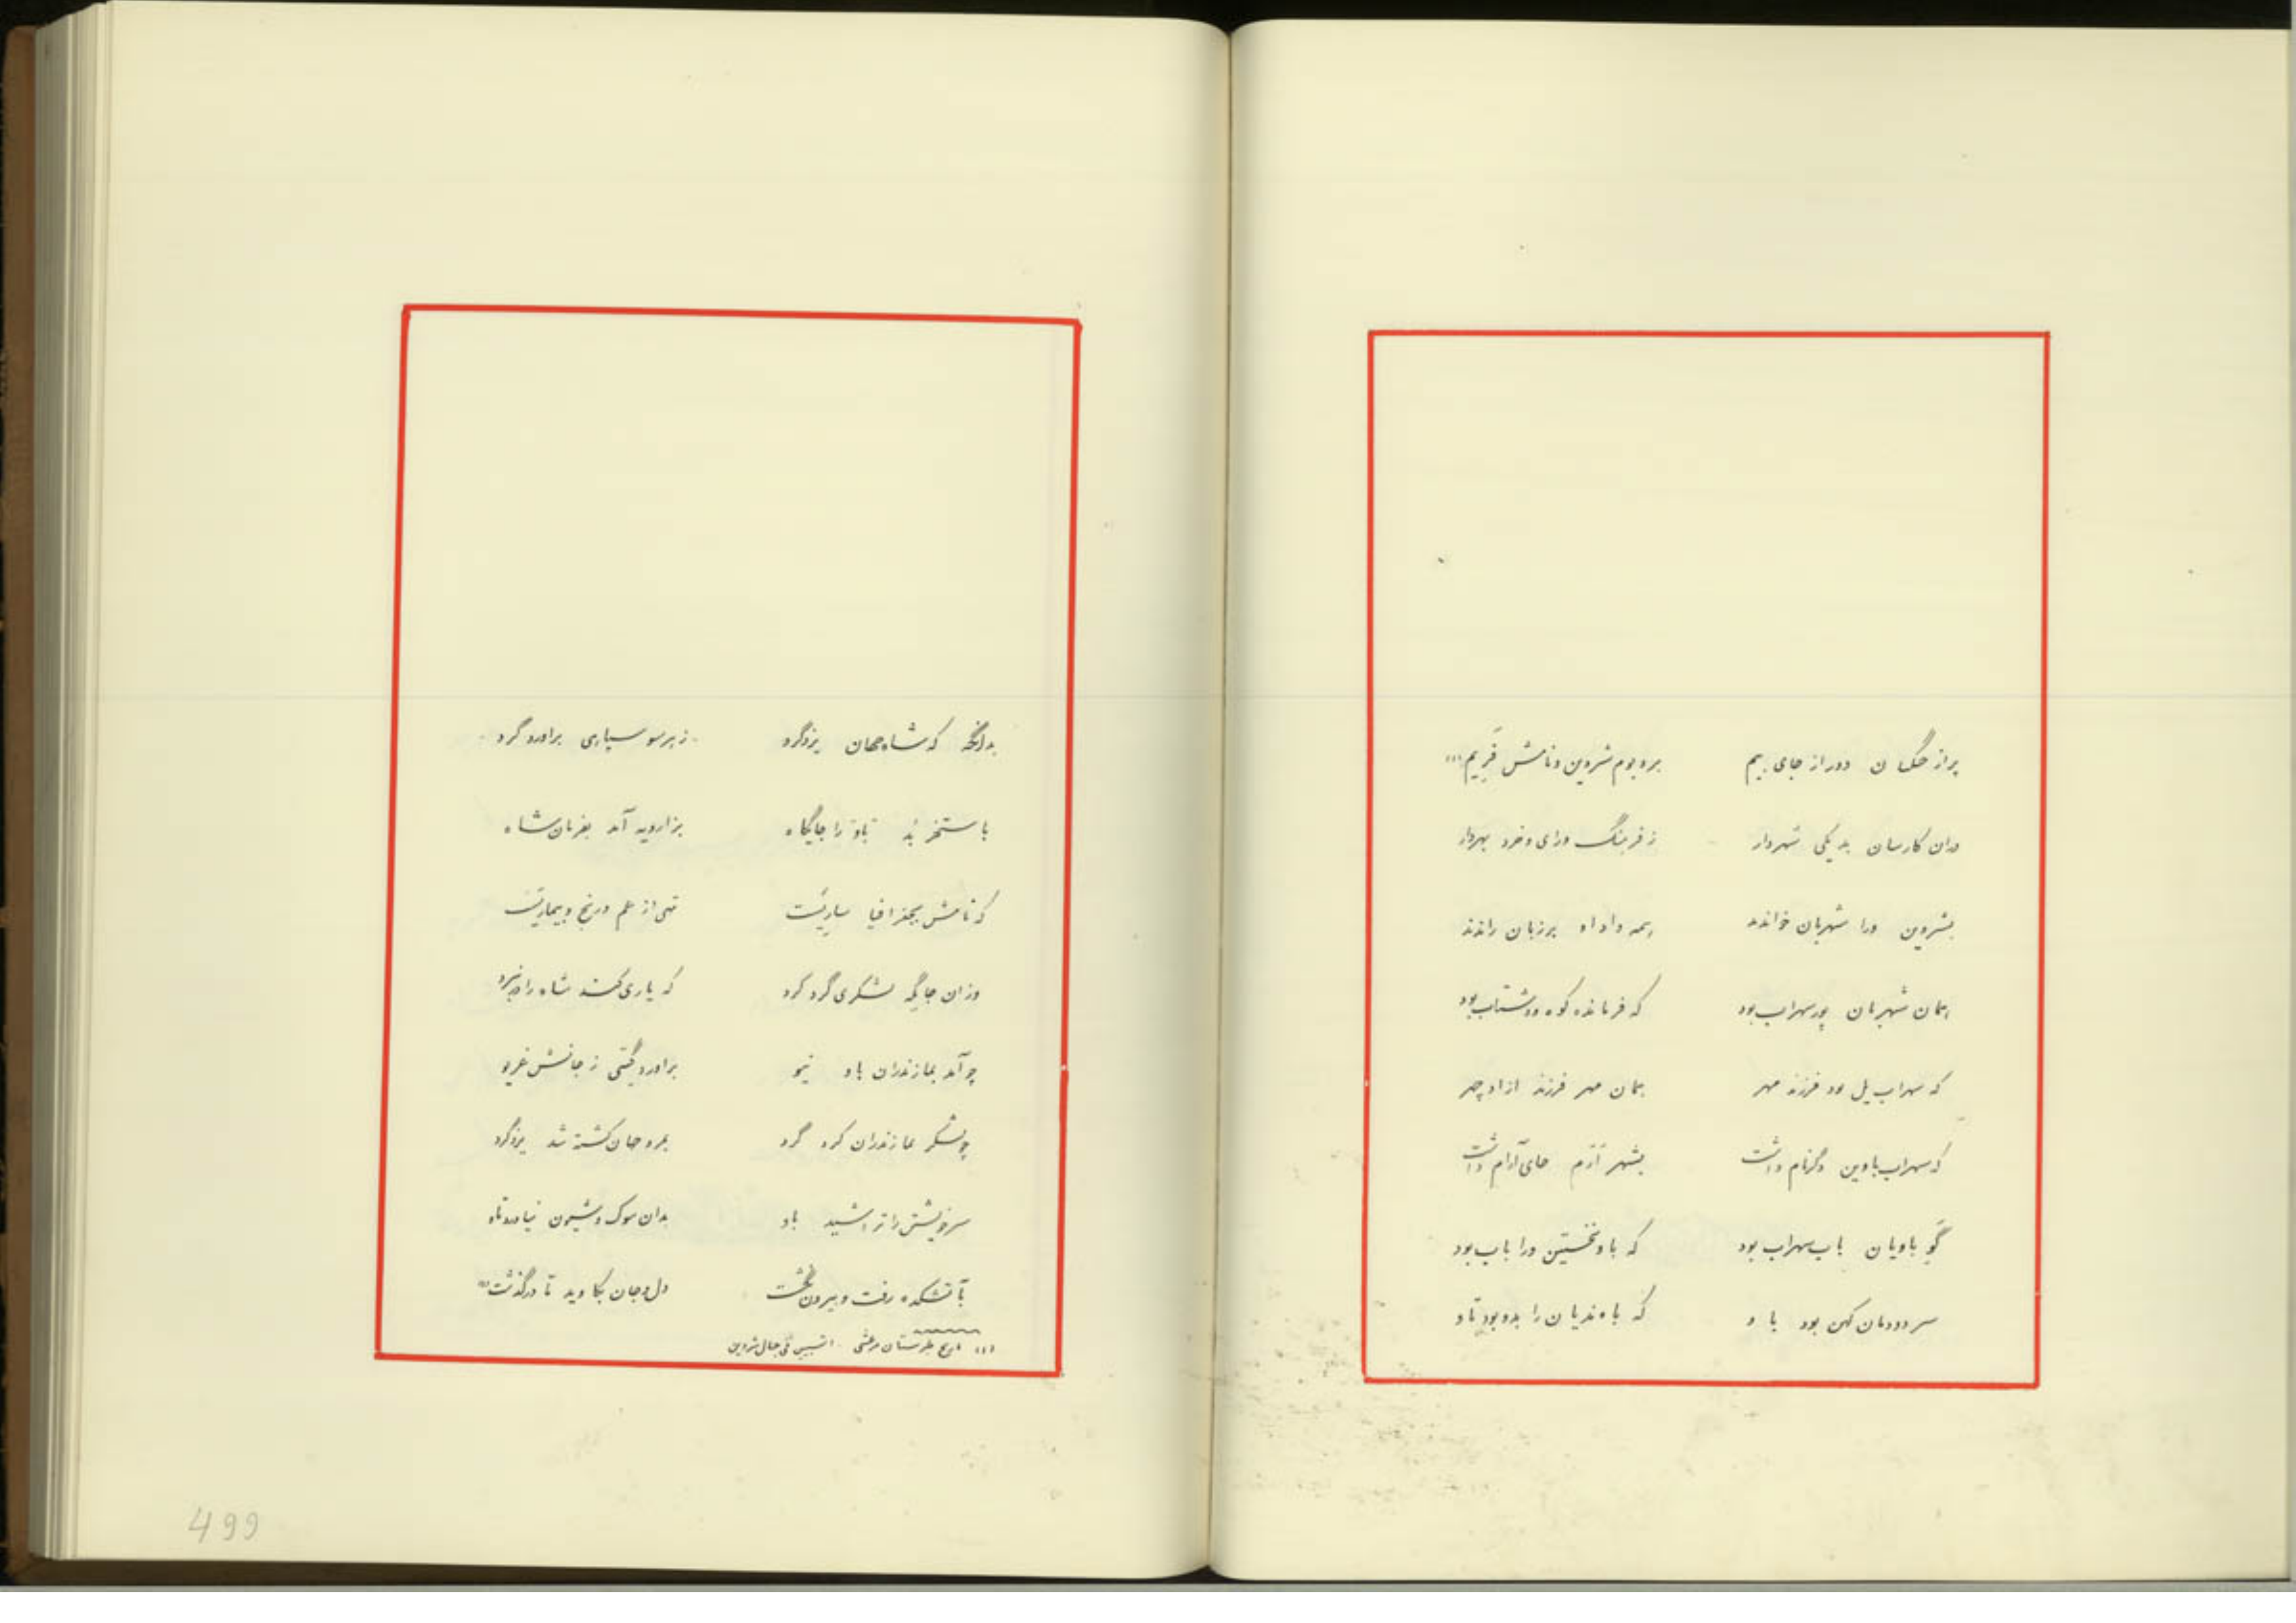 پر از جنگیان دور از جای بیم    بر و بوم شروین و نامش فَریم (۱)
دران کارسان بد یکی شهردار    ز فرهنگ و رای و خرد بهردار
بشروین ورا شهربان خواندند    همه داد او بر زبان راندند
همان شهربان پور سهراب بود    که فرمانده کوه و دشتاب بود
که سهراب یل بود فرزند مهر    همان مهر فرزند ازاد چهر
که سهراب باوین دگر نام داشت    بشهر اَرَم جای آرام داشت
گَو باویان باب سهراب بود    که باو نخستین ورا باب بود
سر دودمان کهن بود باو    که باوندیان را بدو بود تاو
بدانگه که شاه جهان یزدگرد    ز هر سو سپاهی براورد گرد
باستخر بُد باو را جایگاه    بزارویه آمد بفرمان شاه
که نامش بجغرافیا ساریَست    تهی از غم و رنج و بیماریست
وزان جایگه لشکری گرد کرد    که یاری کند شاه را در نبرد
چو آمد بمازندران باو نیو    براورد گیتی ز جانش غریو
چو لشکر بمازندران کرد گرد    بمرو جهان کشته شد یزدگرد
سر خویشتن را تراشید باو    بدان سوک و شیون نیاورد تاو
بآتشکده رفت و بیرون نگشت    دل و جان بکاوید تا درگذشت
(۱) تاریخ طبرستان مرعشی جبال شروین
499